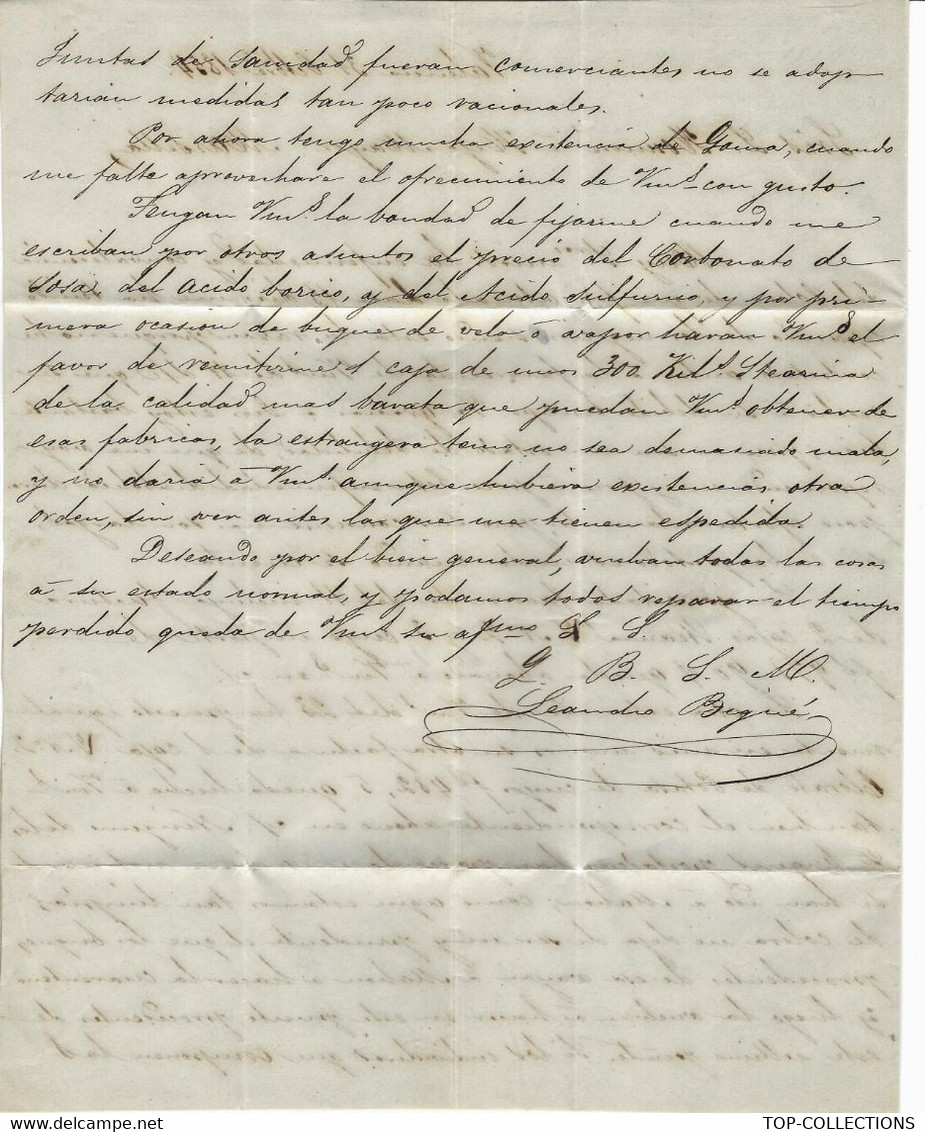 Juntas de Sanidad fueran comerciantes no se adop
tarian medidas tan poco racionales.
Por ahora tengo mucha existencia de Goma, cuando
me falte aprovechare el ofrecimiento de Vms. con gusto.
Tengan Vms. la bondad de fijarme cuando me
escriban por otros asuntos el precio del Carbonato de
Sosa, del acido borico, y del Acido Sulfurico, y por pri-
mera ocasion de buque de vela ó vapor haran Vms. el
favor de remitirme 1 caja de unos 300 Kils. Stearina
de la calidad mas barata que puedan Vms. obtener de
esas fabricas, la estrangera temo no sea demasiado mala,
y no daria á Vms. aunque hubiera existencias otra
orden, sin ver antes la que me tienen espedida.
Deseando por el bien general, vuelvan todas las cosas
á su estado normal, y podamos todos reparar el tiempo
perdido queda de Vms. su afmo S. S.
Q. B. S. M.
Leandro Bigué
TOP-COLLECTIONS